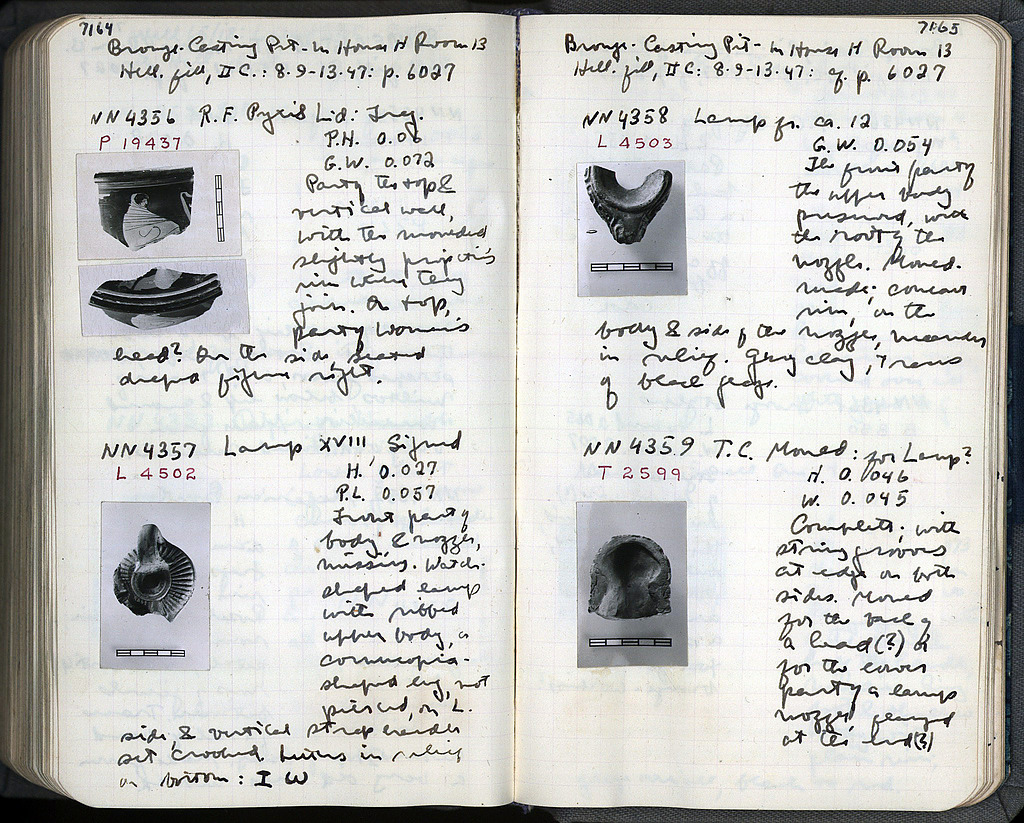 7164
Bronze-Casting Pit - in House H Room 13
Hell. fill, II C.: 8-9-13-47: p. 6027
NN 4356 R.F. Pyxis Lid: Frag.
P 19437
P.H. 0.06
G.W. 0.072
Part of the top &
vertical wall,
with the moulded
slightly projecting
rim where they
join. On top,
part of woman's
head? On the side, seated
draped figure right.
NN 4357 Lamp XVIII, Signed
L 4502
H. 0.027
P.L. 0.057
Front part of
body, & nozzle,
missing. Watch-
shaped lamp
with ribbed
upper body, a
cornucopia-
shaped lug, not
pierced, on L.
side & vertical strap handle
set crooked. Letters in relief
on bottom: I W
7165
Bronze-Casting Pit - in House H Room 13
Hell. fill, II C.: 8-9-13-47: cf. p. 6027
NN 4358 Lamp fr. ca. 12
L 4503
G.W. 0.054
The front part of
the upper body
preserved, with
the root of the
nozzle. Mould-
made; concave
rim, on the
body & side of the nozzle, meander
in relief. Gray clay, traces
of black glaze.
NN 4359 T.C. Mould: for Lamp?
T 2599
H. 0.046
W. 0.045
Complete; with
string grooves
at edge on both
sides. Mould
for the back of
a head (?) or
for the lower
part of a lamp
nozzle,
at the end (?)